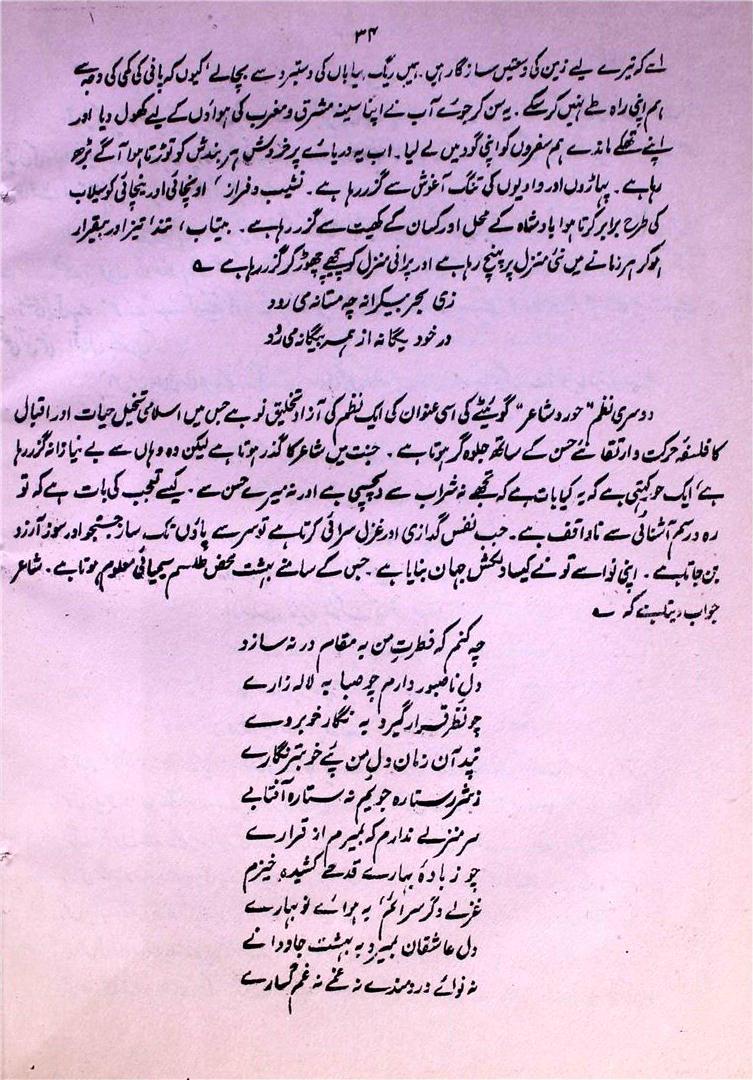 ۳۴
اے کہ تیرے لیے زمین کی وسعتیں سازگار ہیں۔ ہمیں ریگ بیاباں کی دستبرد سے بچالے، کیوں کہ پانی کی کمی کی وجہ سے
ہم اپنی راہ طے نہیں کرسکے۔ یہ سن کر جوئے آب نے اپنا سینہ مشرق و مغرب کی ہواؤں کے لیے کھول دیا اور
اپنے تھکے ماندے ہم سفروں کو اپنی گود میں لے لیا۔ اب یہ دریائے پر خروش ہر بندش کو توڑتا ہوا آگے بڑھ
رہا ہے۔ پہاڑوں اور وادیوں کی تنگ آغوش سے گزر رہا ہے۔ نشیب و فراز، اونچائی اور نیچائی کو سیلاب
کی طرح برابر کرتا ہوا بادشاہ کے محل اور کسان کے کھیت سے گزر رہا ہے۔ بیتاب، تند، تیز اور بیقرار
ہوکر ہر زمانے میں نئی منزل پر پہنچ رہا ہے اور پرانی منزل کو پیچھے چھوڑ کر گزر رہا ہے ؎
زی بحر بیکرانہ چہ مستانہ می رود
در خود یگانہ از ہمہ بیگانہ می رود
دوسری نظم "حور و شاعر" گوئٹے کی اسی عنوان کی ایک نظم کی آزاد تخلیق نو ہے جس میں اسلامی تخیل حیات اور اقبال
کا فلسفۂ حرکت و ارتقا نئے حسن کے ساتھ جلوہ گر ہوتا ہے۔ جنت میں شاعر کا گذر ہوتا ہے لیکن وہ وہاں سے بے نیازانہ گزر رہا
ہے، ایک حور کہتی ہے کہ یہ کیا بات ہے کہ تجھے نہ شراب سے دلچسپی ہے اور نہ میرے حسن سے۔ کیسے تعجب کی بات ہے کہ تو
رہ و رسم آشنائی سے ناواقف ہے۔ جب نفس گدازی اور غزل سرائی کرتا ہے تو سر سے پاؤں تک ساز جستجو اور سوز آرزو
بن جاتا ہے۔ اپنی نوا سے تو نے کیسا دلکش جہان بنایا ہے۔ جس کے سامنے بہشت محض طلسم سیمیائی معلوم ہوتا ہے۔ شاعر
جواب دیتا ہے کہ ؎
چہ کنم کہ فطرتِ من بہ مقام در نہ سازد
دلِ ناصبور دارم چو صبا بہ لالہ زارے
چو نظر قرار گیرد بہ نگار خوبروے
تپد آن زمان دل من پئے خوبتر نگارے
ز شرر ستارہ جویم ز ستارہ آفتابے
سر منزلے ندارم کہ بمیرم از قرارے
چو ز بادۂ بہارے قدحے کشیدہ خیزم
غزلے دگر سرائم، بہ ہوائے نو بہارے
دل عاشقان بمیرد بہ بہشت جاودانے
نہ نوائے دردمندے نہ غمے نہ غم گسارے